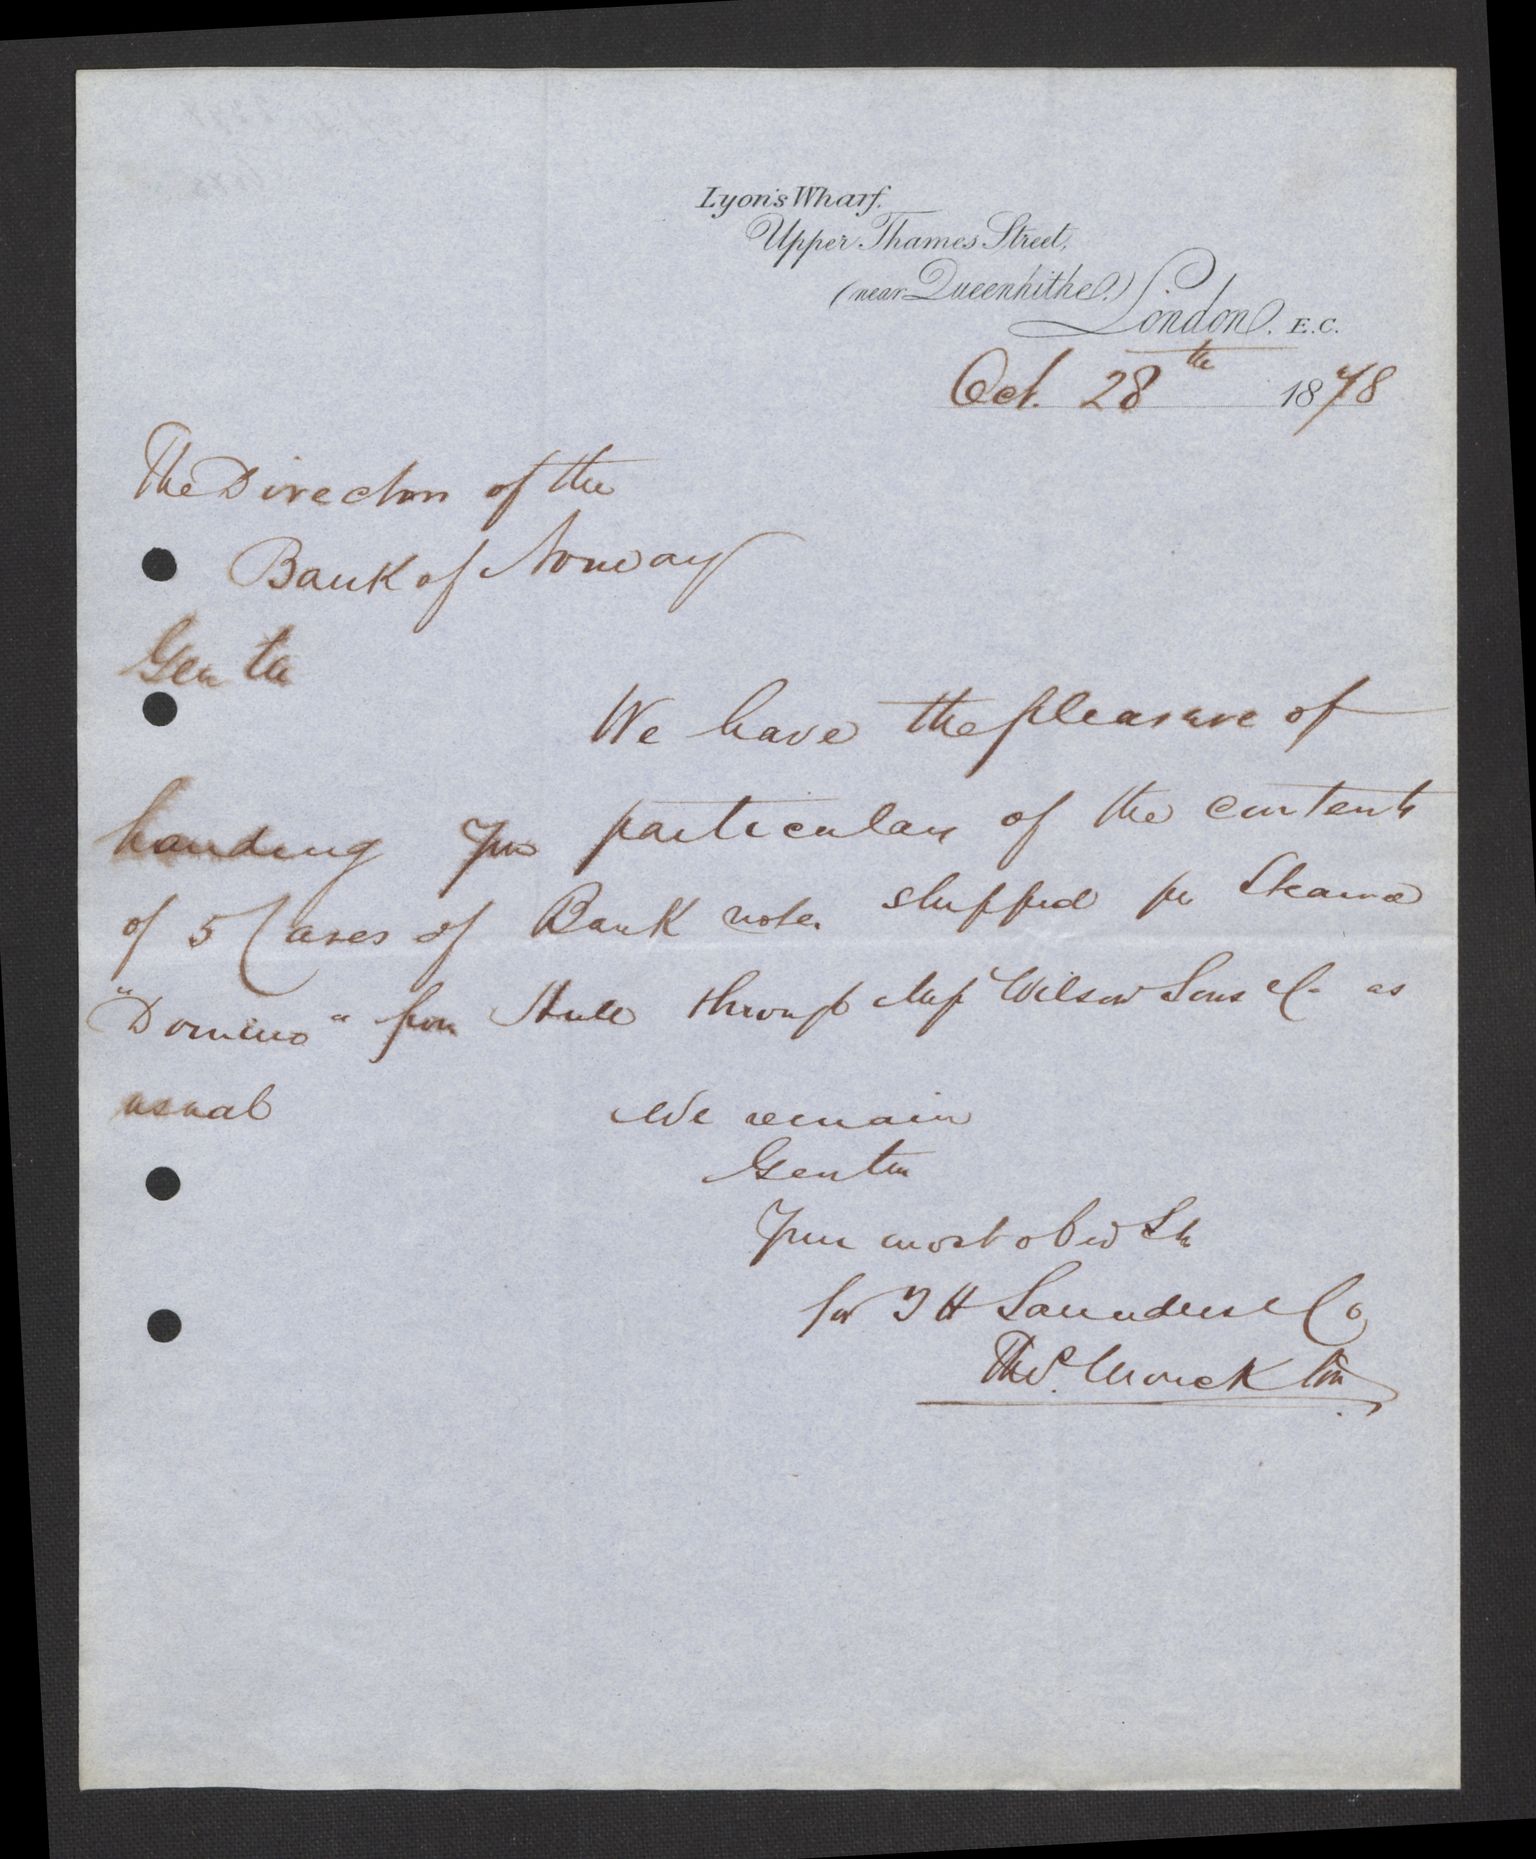 Lyon's Wharf.
Upper Thames Street,
(near Queenhithe.)
London. E.C.
Oct. 28th 1878
The Directors of the
Bank of Norway
Gentn
We have the pleasure of
handing you particulars of the contents
of 5 Cases of Bank notes shipped per Steamer
"Domino" from Hull through Messrs Wilson Sons & Co as
usual
We remain
Gentn
Your most obed Sts
for T H Saunders & Co
Thos.